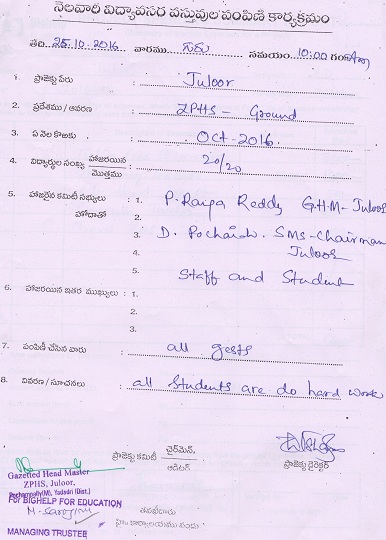 నెలవారి విద్యావసర వస్తువుల పంపిణి కార్యక్రమం
తేది. 25.10.2016 వారము గురు సమయం. 10:00 గం
1. ప్రాజెక్టు పేరు : Juloor
2. ప్రదేశము / ఆవరణ : ZPHS - Ground
3. ఏ నెల కొఱకు : Oct-2016
4. విద్యార్థుల సంఖ్య హాజరయిన / మొత్తము : 20/20
5. హాజరైన కమిటీ సభ్యులు : 1. P. Raipa Reddy GHM - Juloor
హోదాతో 2.
3. D. Pochaiah. SMS - Chairman
4. Juloor
5. Staff and Student
6. హాజరయిన ఇతర ముఖ్యులు : 1.
2.
3.
7. పంపిణీ చేసిన వారు : all gests
8. వివరణ / సూచనలు : all Students are do hard work
ప్రాజెక్టు కమిటీ చైర్మెన్, / ఆడిటర్
ప్రాజెక్టు డైరెక్టర్
Gazetted Head Master
ZPHS, Juloor,
Pochampally(M), Yadadri (Dist.)
For BIGHELP FOR EDUCATION
M. Sarojini
తనఖీదారు
హెూం కార్యాలయము నందు
MANAGING TRUSTEE